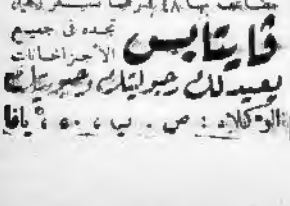 تجده في جميع
الأجزاخانات
ڤايتابس
يعيد لك رجوليتك وحيويتك
الوكلاء : ص . ب ، ٥٠ ، يافا